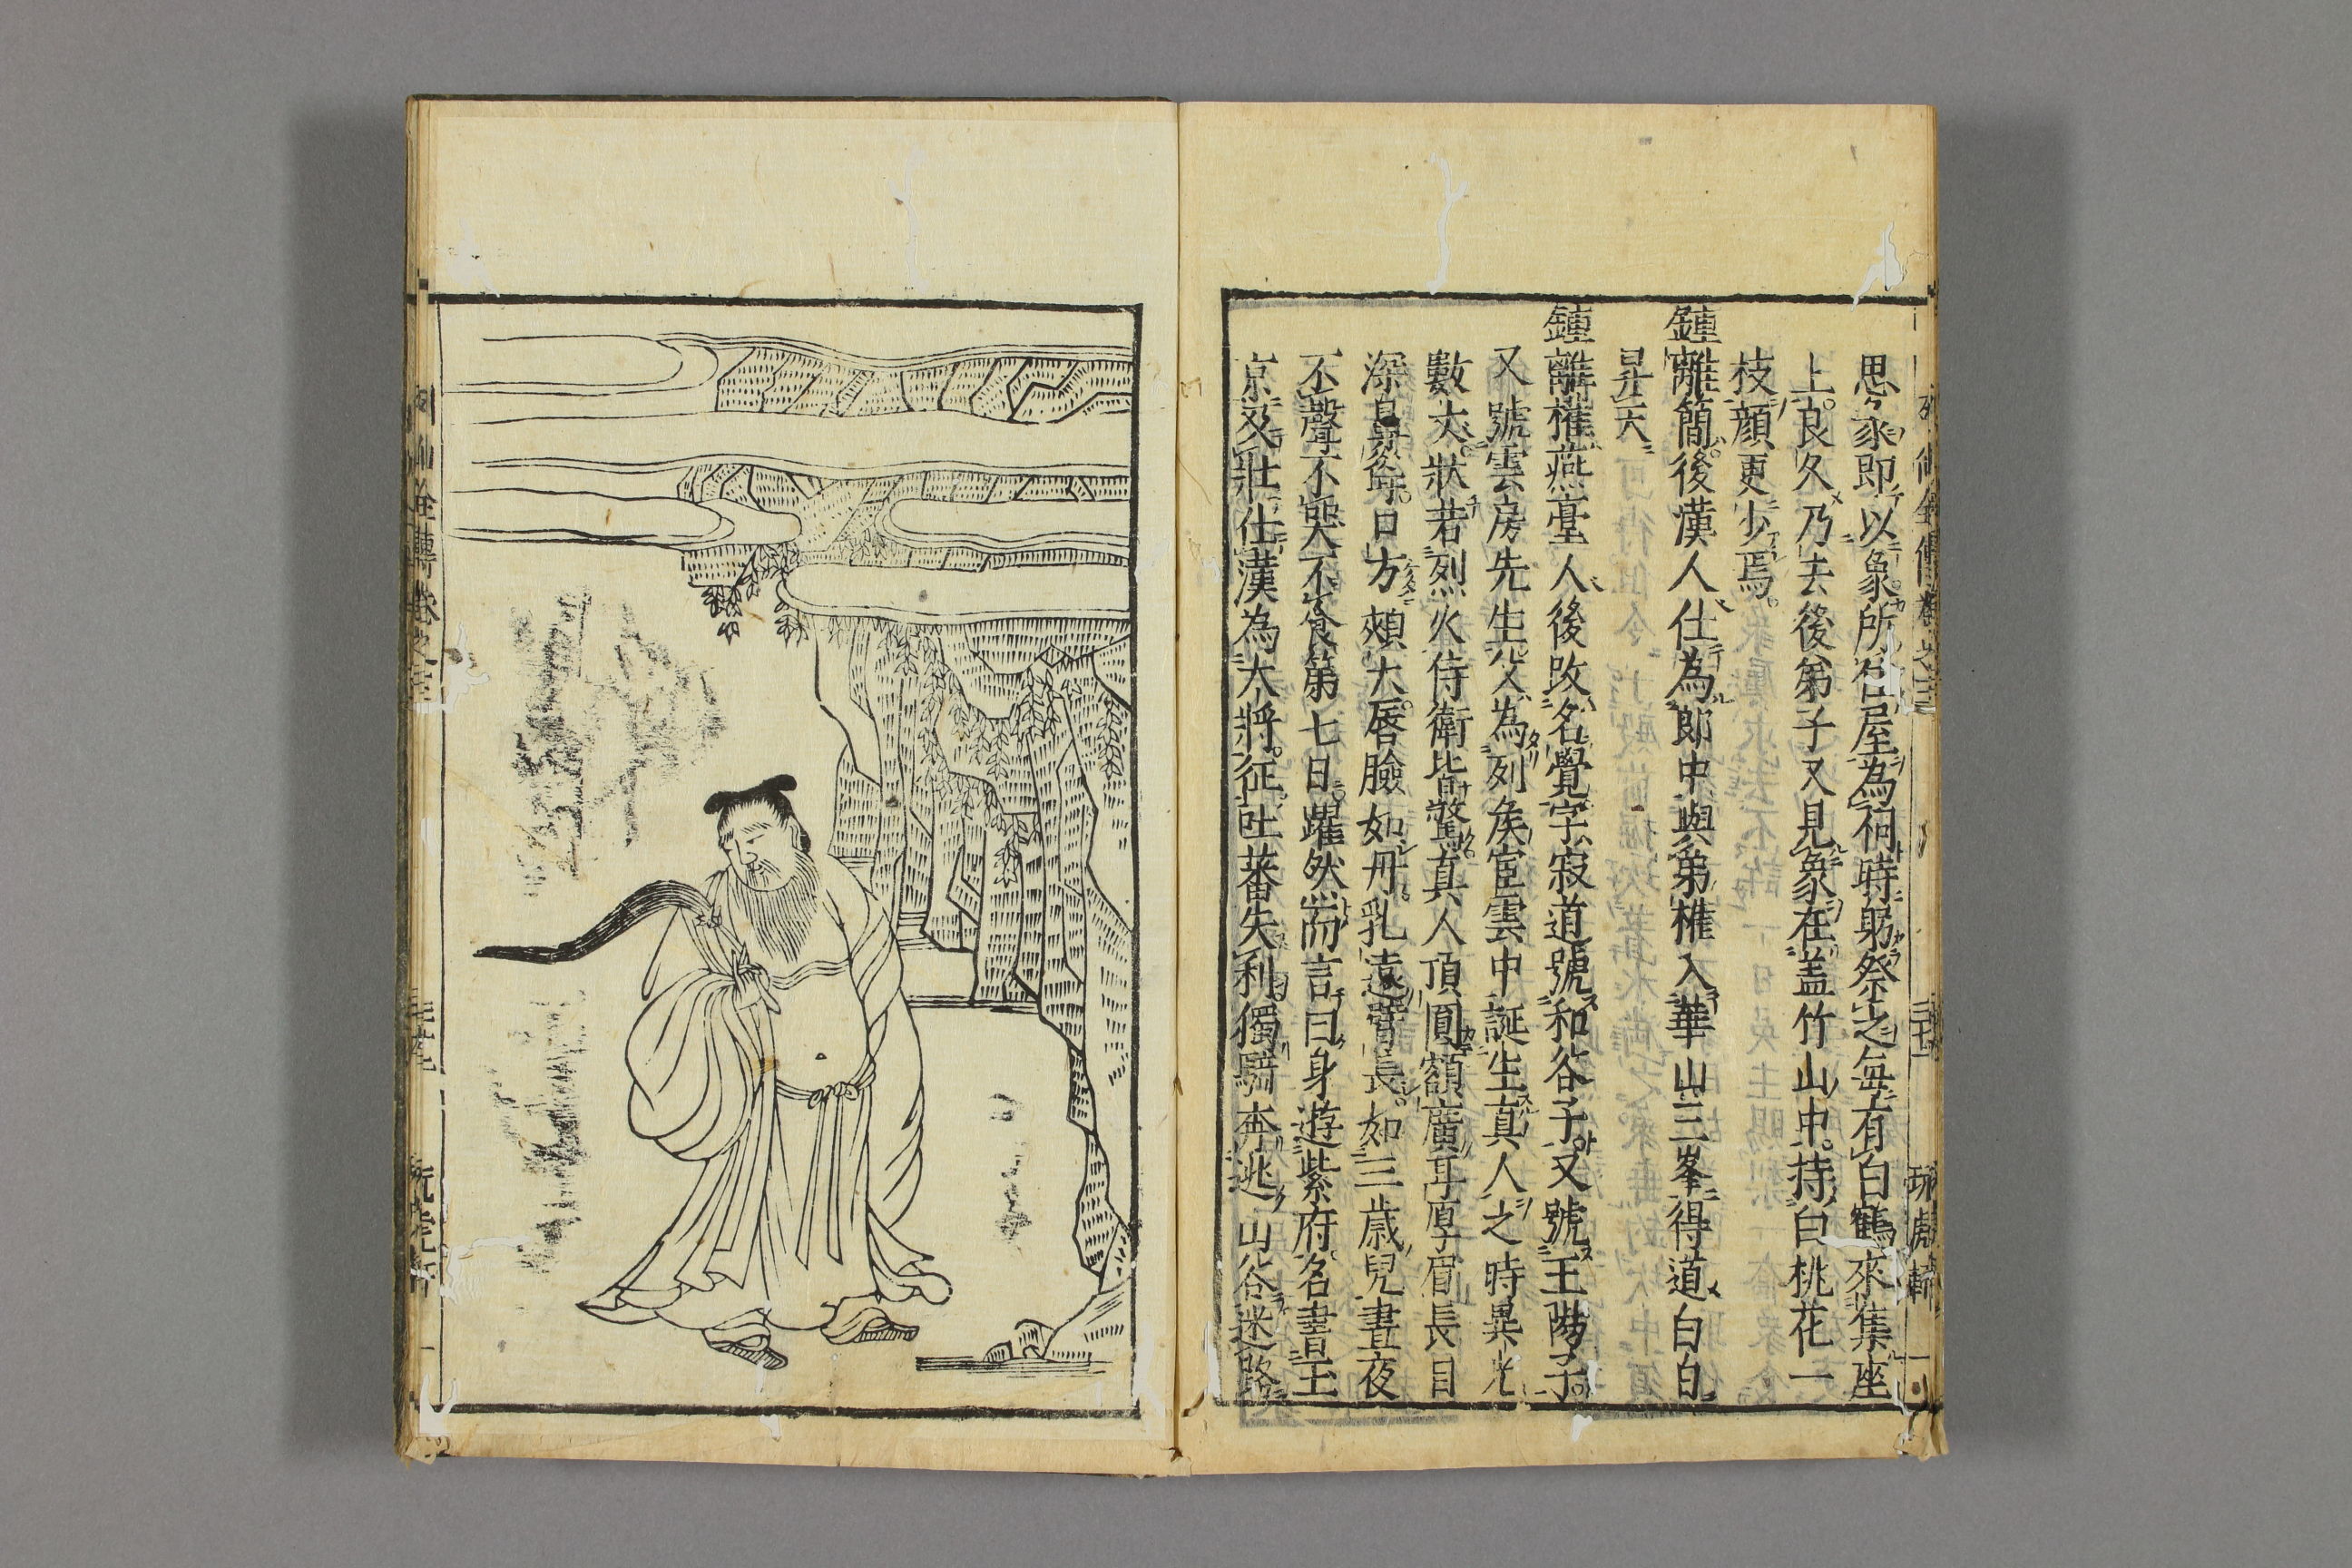 思象即以象所住屋為祠時躬祭之每有白鶴來集座
上良久乃去後弟子又見象在盖竹山中持白桃花一
枝顔更少焉
鍾離簡後漢人仕為郎中與弟權入華山三峯得道白日
昇天
鍾離權燕臺人後改名覺字寂道號和谷子又號王陽子
又號雲房先生父為列矦宦雲中誕生真人之時異光
數丈狀若烈火侍衛皆驚真人頂圓額廣耳厚眉長目
深鼻聳口方頰大唇臉如丹乳遠臂長如三歲兒晝夜
不聲不哭不食第七日躍然而言曰身遊紫府名書玉
京及壯仕漢為大將征吐蕃失利獨騎奔逃山谷迷路